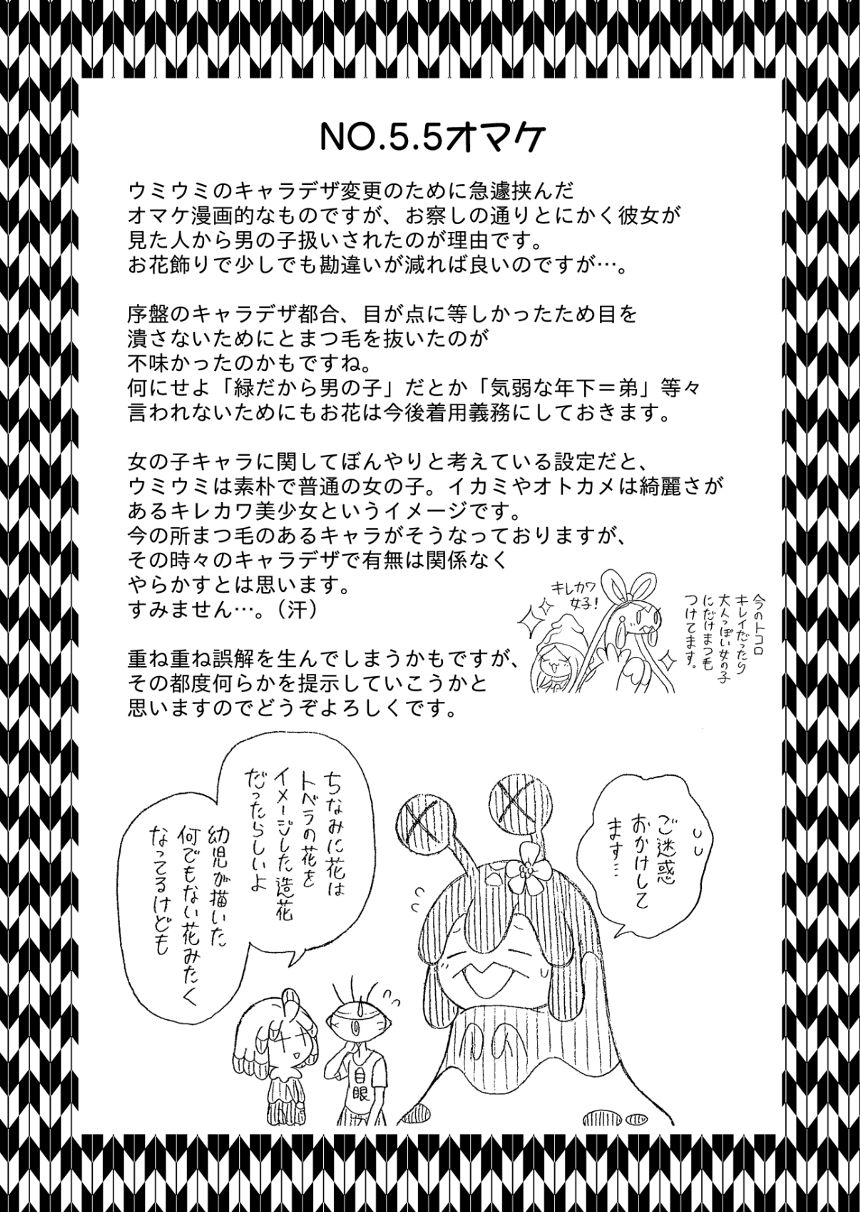 NO.5.5オマケ
ウミウミのキャラデザ変更のために急遽挟んだ
オマケ漫画的なものですが、お察しの通りとにかく彼女が
見た人から男の子扱いされたのが理由です。
お花飾りで少しでも勘違いが減れば良いのですが…。
序盤のキャラデザ都合、目が点に等しかったため目を
潰さないためにとまつ毛を抜いたのが
不味かったのかもですね。
何にせよ「緑だから男の子」だとか「気弱な年下＝弟」等々
言われないためにもお花は今後着用義務にしておきます。
女の子キャラに関してぼんやりと考えている設定だと、
ウミウミは素朴で普通の女の子。イカミやオトカメは綺麗さが
あるキレカワ美少女というイメージです。
今の所まつ毛のあるキャラがそうなっておりますが、
その時々のキャラデザで有無は関係なく
やらかすとは思います。
すみません…。（汗）
重ね重ね誤解を生んでしまうかもですが、
その都度何らかを提示していこうかと
思いますのでどうぞよろしくです。
キレカワ
女子！
今のトコロ
キレイだったり
大人っぽい女の子
にだけまつ毛
つけてます。
ご迷惑
おかけして
ます…
ちなみに花は
トベラの花を
イメージした造花
だったらしいよ
幼児が描いた
何でもない花みたく
なってるけども
目
眼